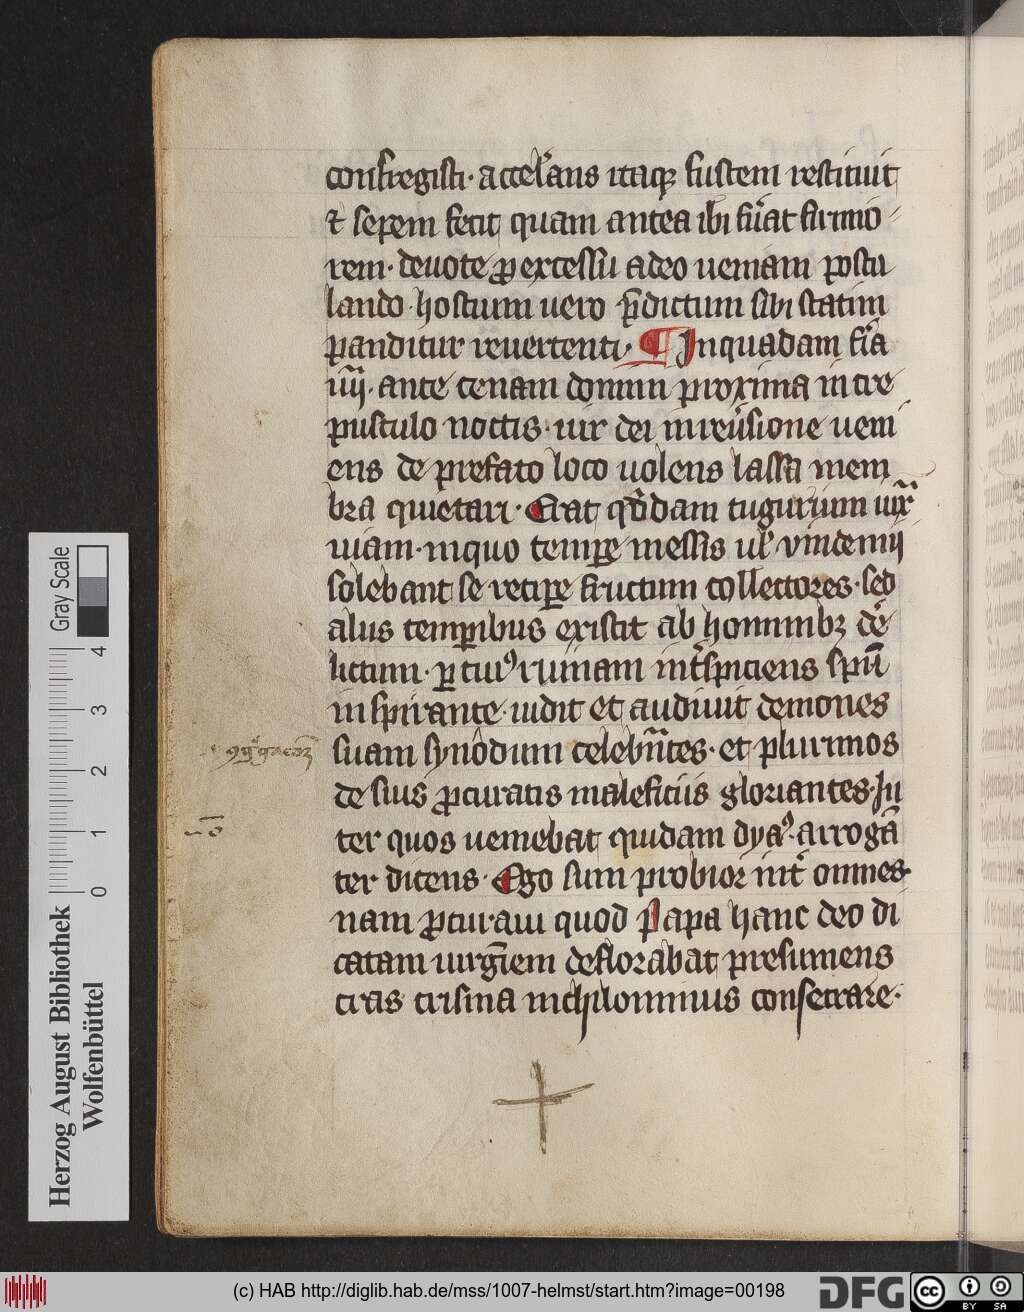 confregisti· accel̛ans itaq; fustem restituit
⁊ sepem fecit quam antea ibi fưat firmio
rem· deuote ꝓ excessu adeo ueniam postu
lando· hostium uero p̄dictum sibi statim
panditur reuertenti· ¶ Inquadam fr̛ia
iiij· ante cenam domini proxima in cre
pusculo noctis· uir dei in reưsione ueni
ens de prefato loco uolens lassa mem
bra quietari· Erat qđdam tugurium iux̄
uiam· inquo tempe messis ul̛ vindemij
solebant se recipe fructuum collectores· sed
alus temꝑibus existit ab hominibꝫ de̛
lictum· ꝑ cuiꝰ ruinam int̛spiciens spū
inspirante· uidit et audiuit demones
suam synodum celebrātes· et plurimos
de suis ꝓcuratis maleficiis gloriantes· In
ter quos ueniebat quidam dyaꝰ· arrogā
ter dicens· Ego sum probior int̛ omnes·
nam ꝓcuraui quod Papa hanc deo di
catam uirgīem deflorabat presumens
cras crisma nichilominus consecrare·
Herzog August Bibliothek
Wolfenbüttel
Gray Scale
0 1 2 3 4
(c) HAB http://diglib.hab.de/mss/1007-helmst/start.htm?image=00198
DFG
cc BY SA